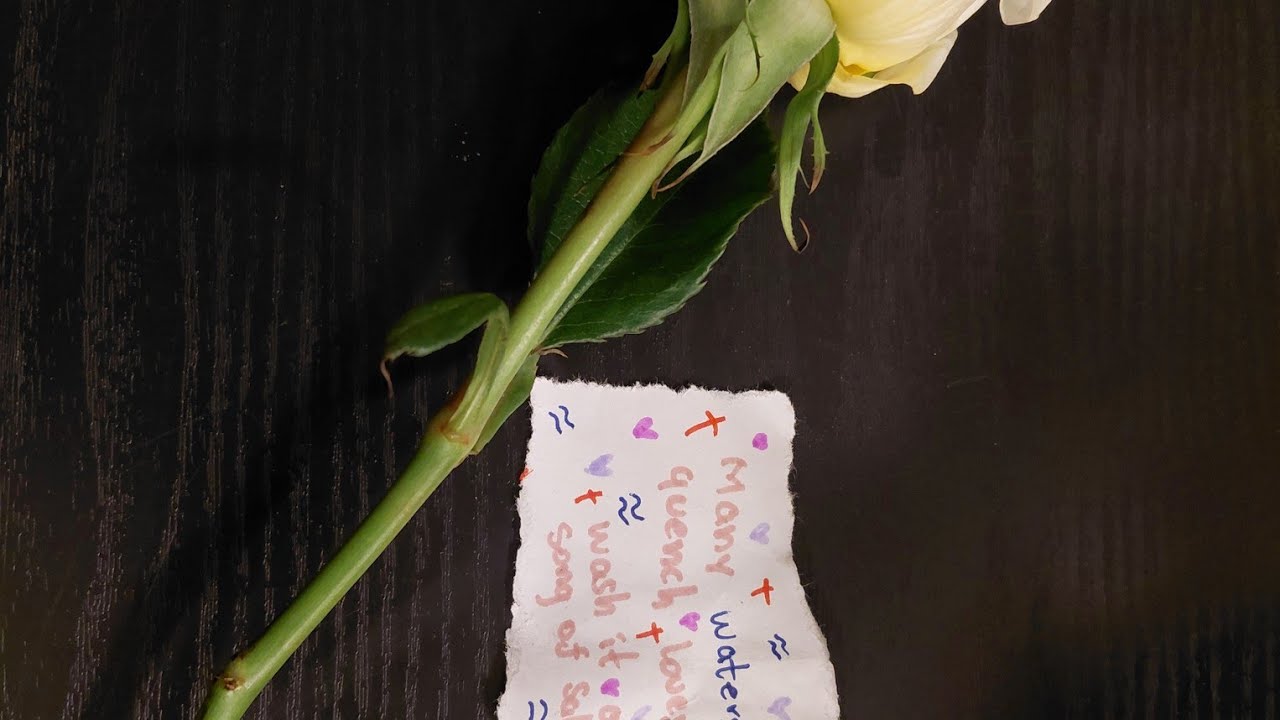 Many water
quench love
wash it
song of